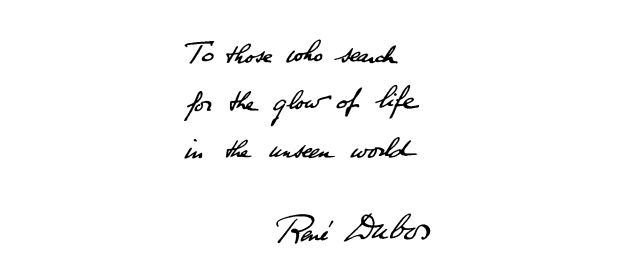 To those who search
for the glow of life
in the unseen world
René Dubos